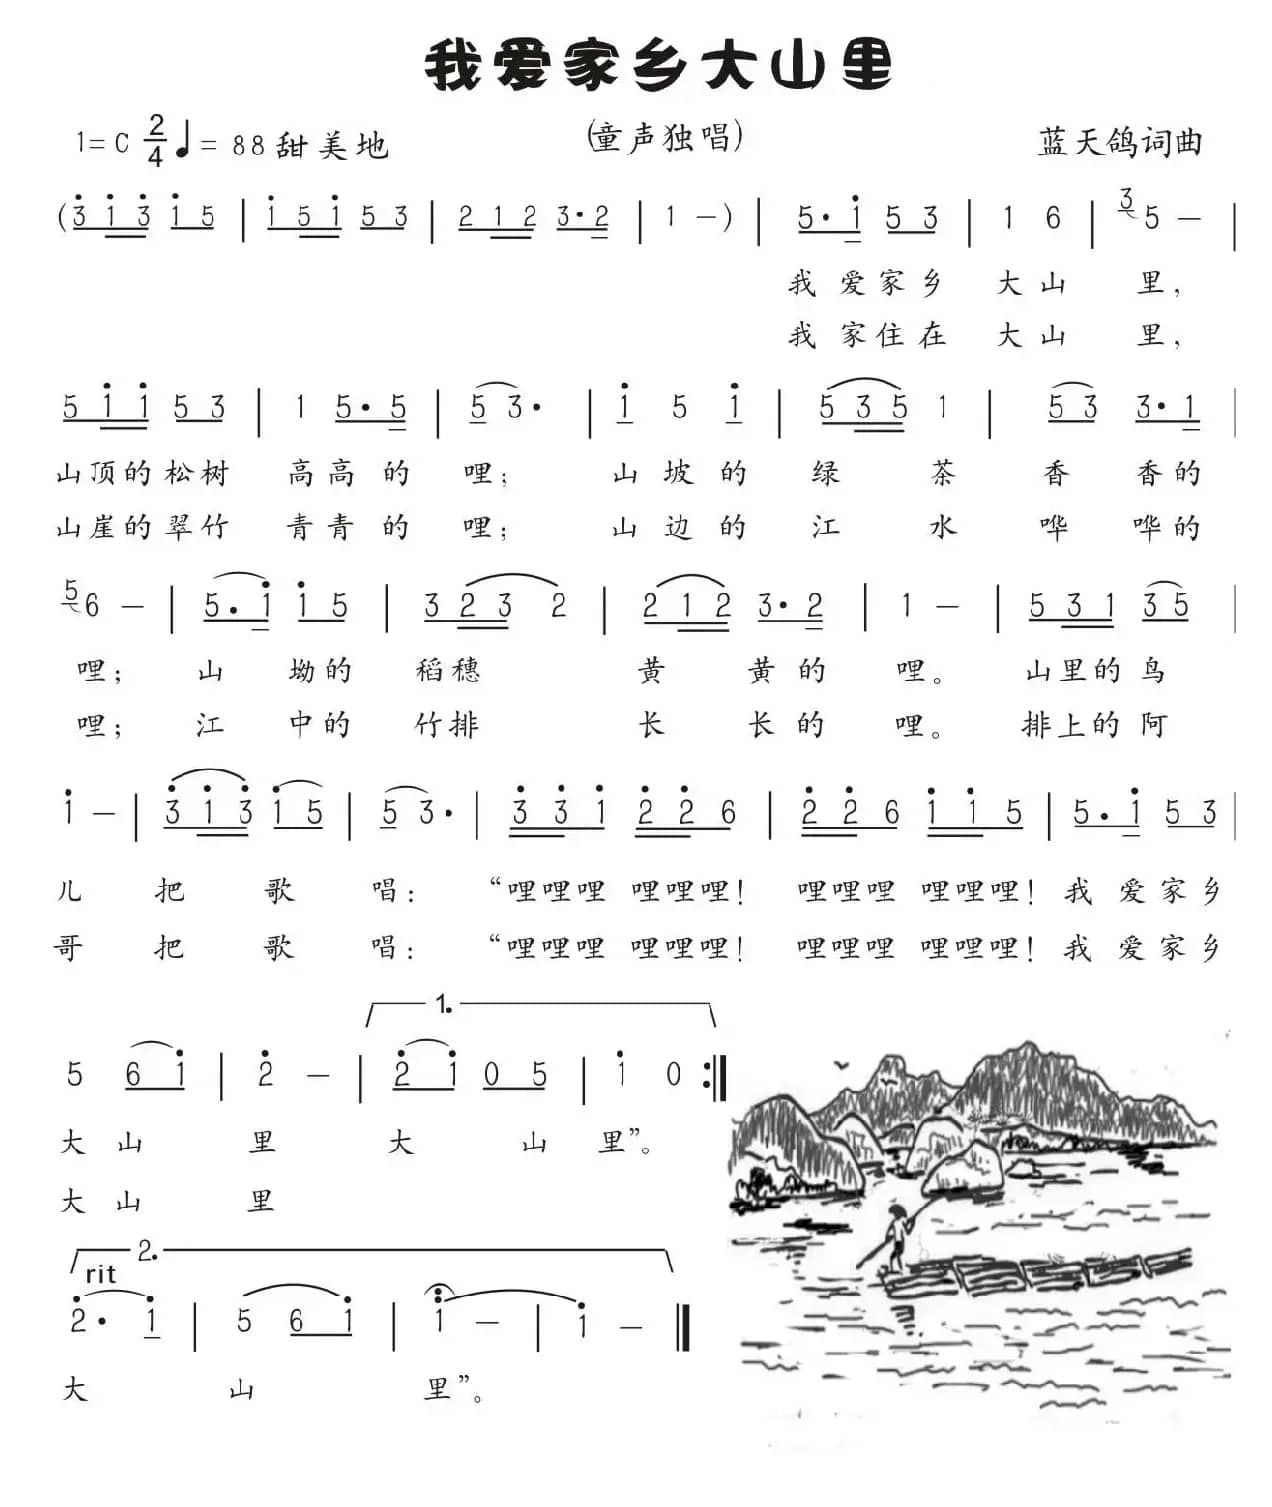 我爱家乡大山里
1=C 2/4 ♩=88 甜美地 (童声独唱) 蓝天鸽词曲
(3 1 3 1 5 | 1 5 1 5 3 | 2 1 2 3·2 | 1 -) | 5·1 5 3 | 1 6 | 3 5 - |
我爱家乡 大山 里,
我家住在 大山 里,
5 1 1 5 3 | 1 5·5 | 5 3· | 1 5 1 | 5 3 5 1 | 5 3 3·1 |
山顶的松树 高高的 哩; 山坡的 绿 茶 香 香的
山崖的翠竹 青青的 哩; 山边的 江 水 哗 哗的
5 6 - | 5·1 1 5 | 3 2 3 2 | 2 1 2 3·2 | 1 - | 5 3 1 3 5 |
哩; 山 坳的 稻穗 黄 黄的 哩。 山里的鸟
哩; 江 中的 竹排 长 长的 哩。 排上的阿
1 - | 3 1 3 1 5 | 5 3· | 3 3 1 2 2 6 | 2 2 6 1 1 5 | 5·1 5 3 |
儿 把 歌 唱: “哩哩哩 哩哩哩! 哩哩哩 哩哩哩! 我 爱家乡
哥 把 歌 唱: “哩哩哩 哩哩哩! 哩哩哩 哩哩哩! 我 爱家乡
1.
5 6 1 | 2 - | 2 1 0 5 | 1 0 :|
大 山 里 大 山 里”。
大 山 里
2.
rit
2·1 | 5 6 1 | 1 - | 1 - ‖
大 山 里”。